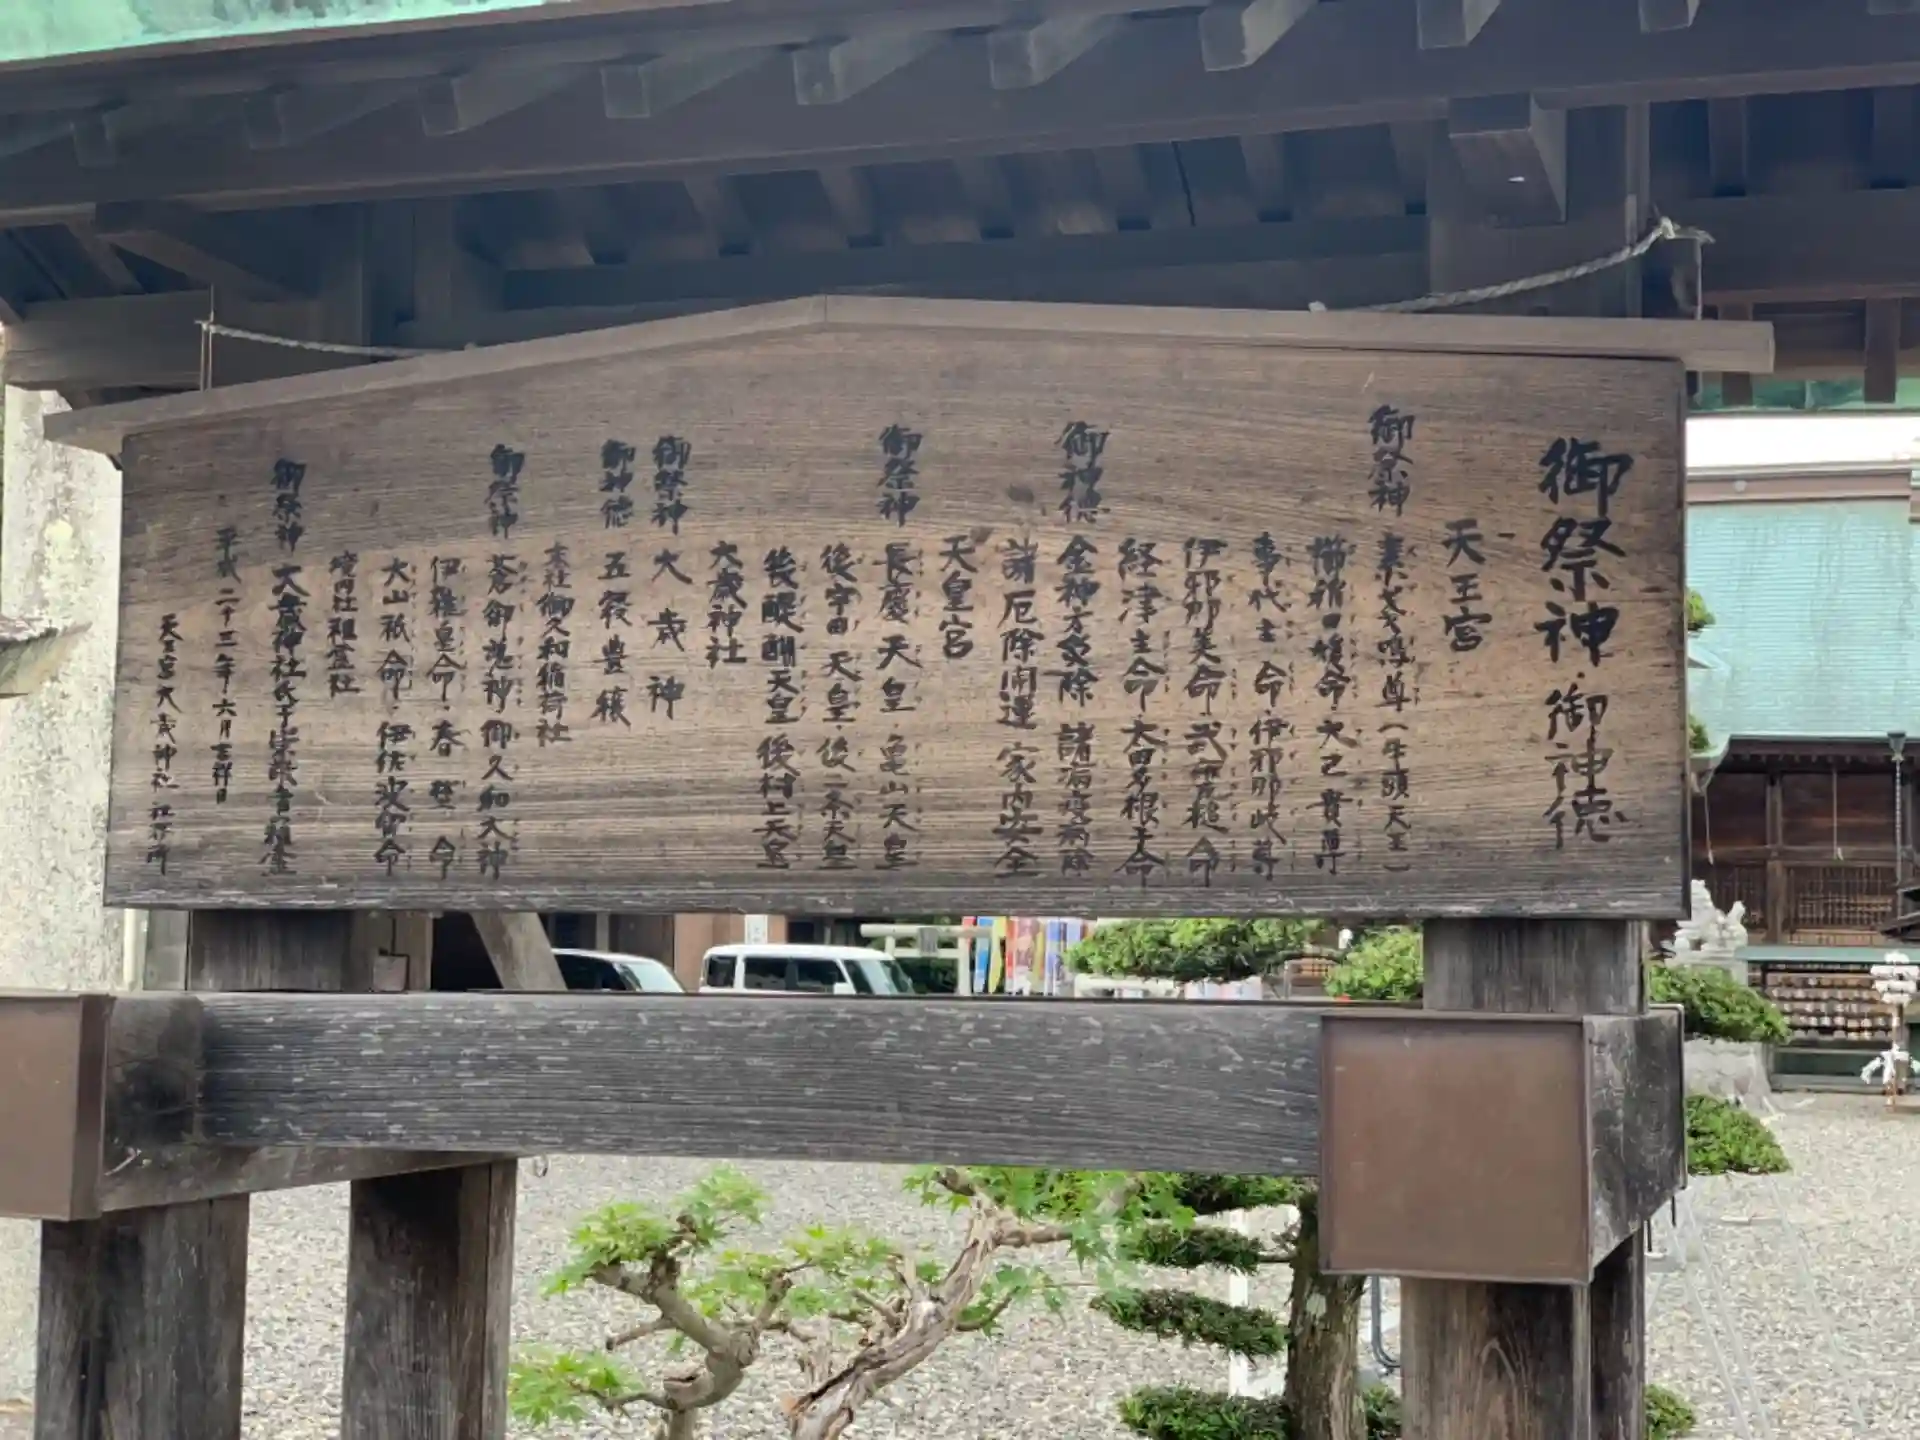 御祭神・御神徳
天王宮
御祭神 素戔嗚尊(牛頭天王)
櫛稲田媛命・大己貴尊
事代主命 伊邪那岐尊
伊邪那美命・武甕槌命
経津主命・太田多根子命
御神徳 金神方災除 諸病疫病除
諸厄除開運 家内安全
天皇宮
御祭神 長慶天皇・亀山天皇
後宇田天皇・後二条天皇
後醍醐天皇 後村上天皇
大歳神社
御祭神 大歳神
御神徳 五穀豊穣
末社御久和稲荷社
御祭神 蒼御魂神 御久和大神
伊雑皇命・春埜命
大山祇命・伊佐波登命
境内社祖霊社
御祭神 大歳神社氏子崇敬者祖霊
平成二十三年六月吉祥日
天王宮大歳神社 社務所